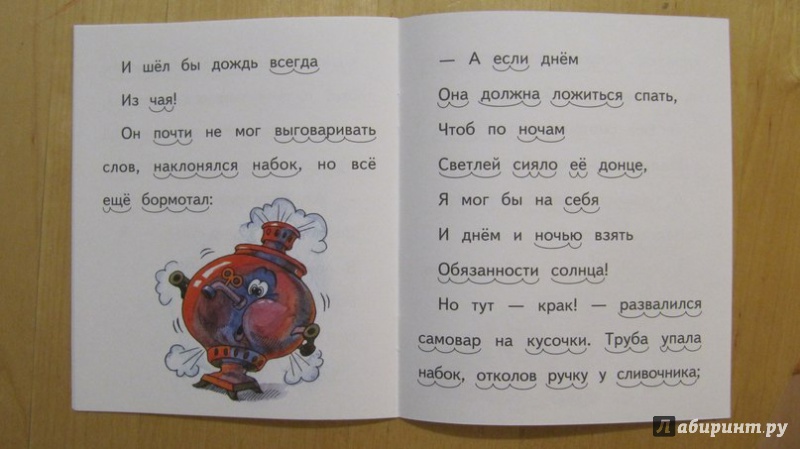 И шёл бы дождь всегда
Из чая!
Он почти не мог выговаривать
слов, наклонялся набок, но всё
ещё бормотал:
— А если днём
Она должна ложиться спать,
Чтоб по ночам
Светлей сияло её донце,
Я мог бы на себя
И днём и ночью взять
Обязанности солнца!
Но тут — крак! — развалился
самовар на кусочки. Труба упала
набок, отколов ручку у сливочника;
Лабиринт.ру